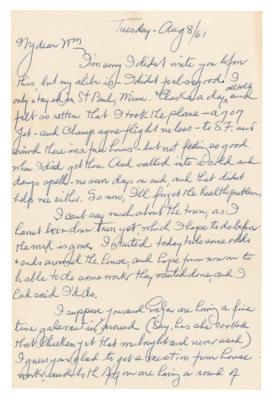 Tuesday - Aug 8/61
My dear Wm
I'm sorry I didn't write you before
this, but my alibi is - I didn't feel so good. I
only stayed in St Paul, Minn. a day, all told
felt so rotten that I took the plane - a 707
Jet - and Champagne flight no less - to S.F. and
arrived there in a few hours - but not feeling so good.
when I did get here. And walked into a cold and
damp spell - no sun days on end, and that didn't
help me either. So now, I'll forget the health problem.
I can't say much about the town, as I
haven't been down town yet, which I hope to do before
the week is gone. I started today to take some odds
& ends around the house, and hope from now on to
be able to do some work they wanted done, and I
had said I'd do.
I suppose you and are having a fine
time around (Say, has she cooked
that chicken yet that was bought and never used)
I guess you're glad to get a vacation from house
work, and both of you are having a round of